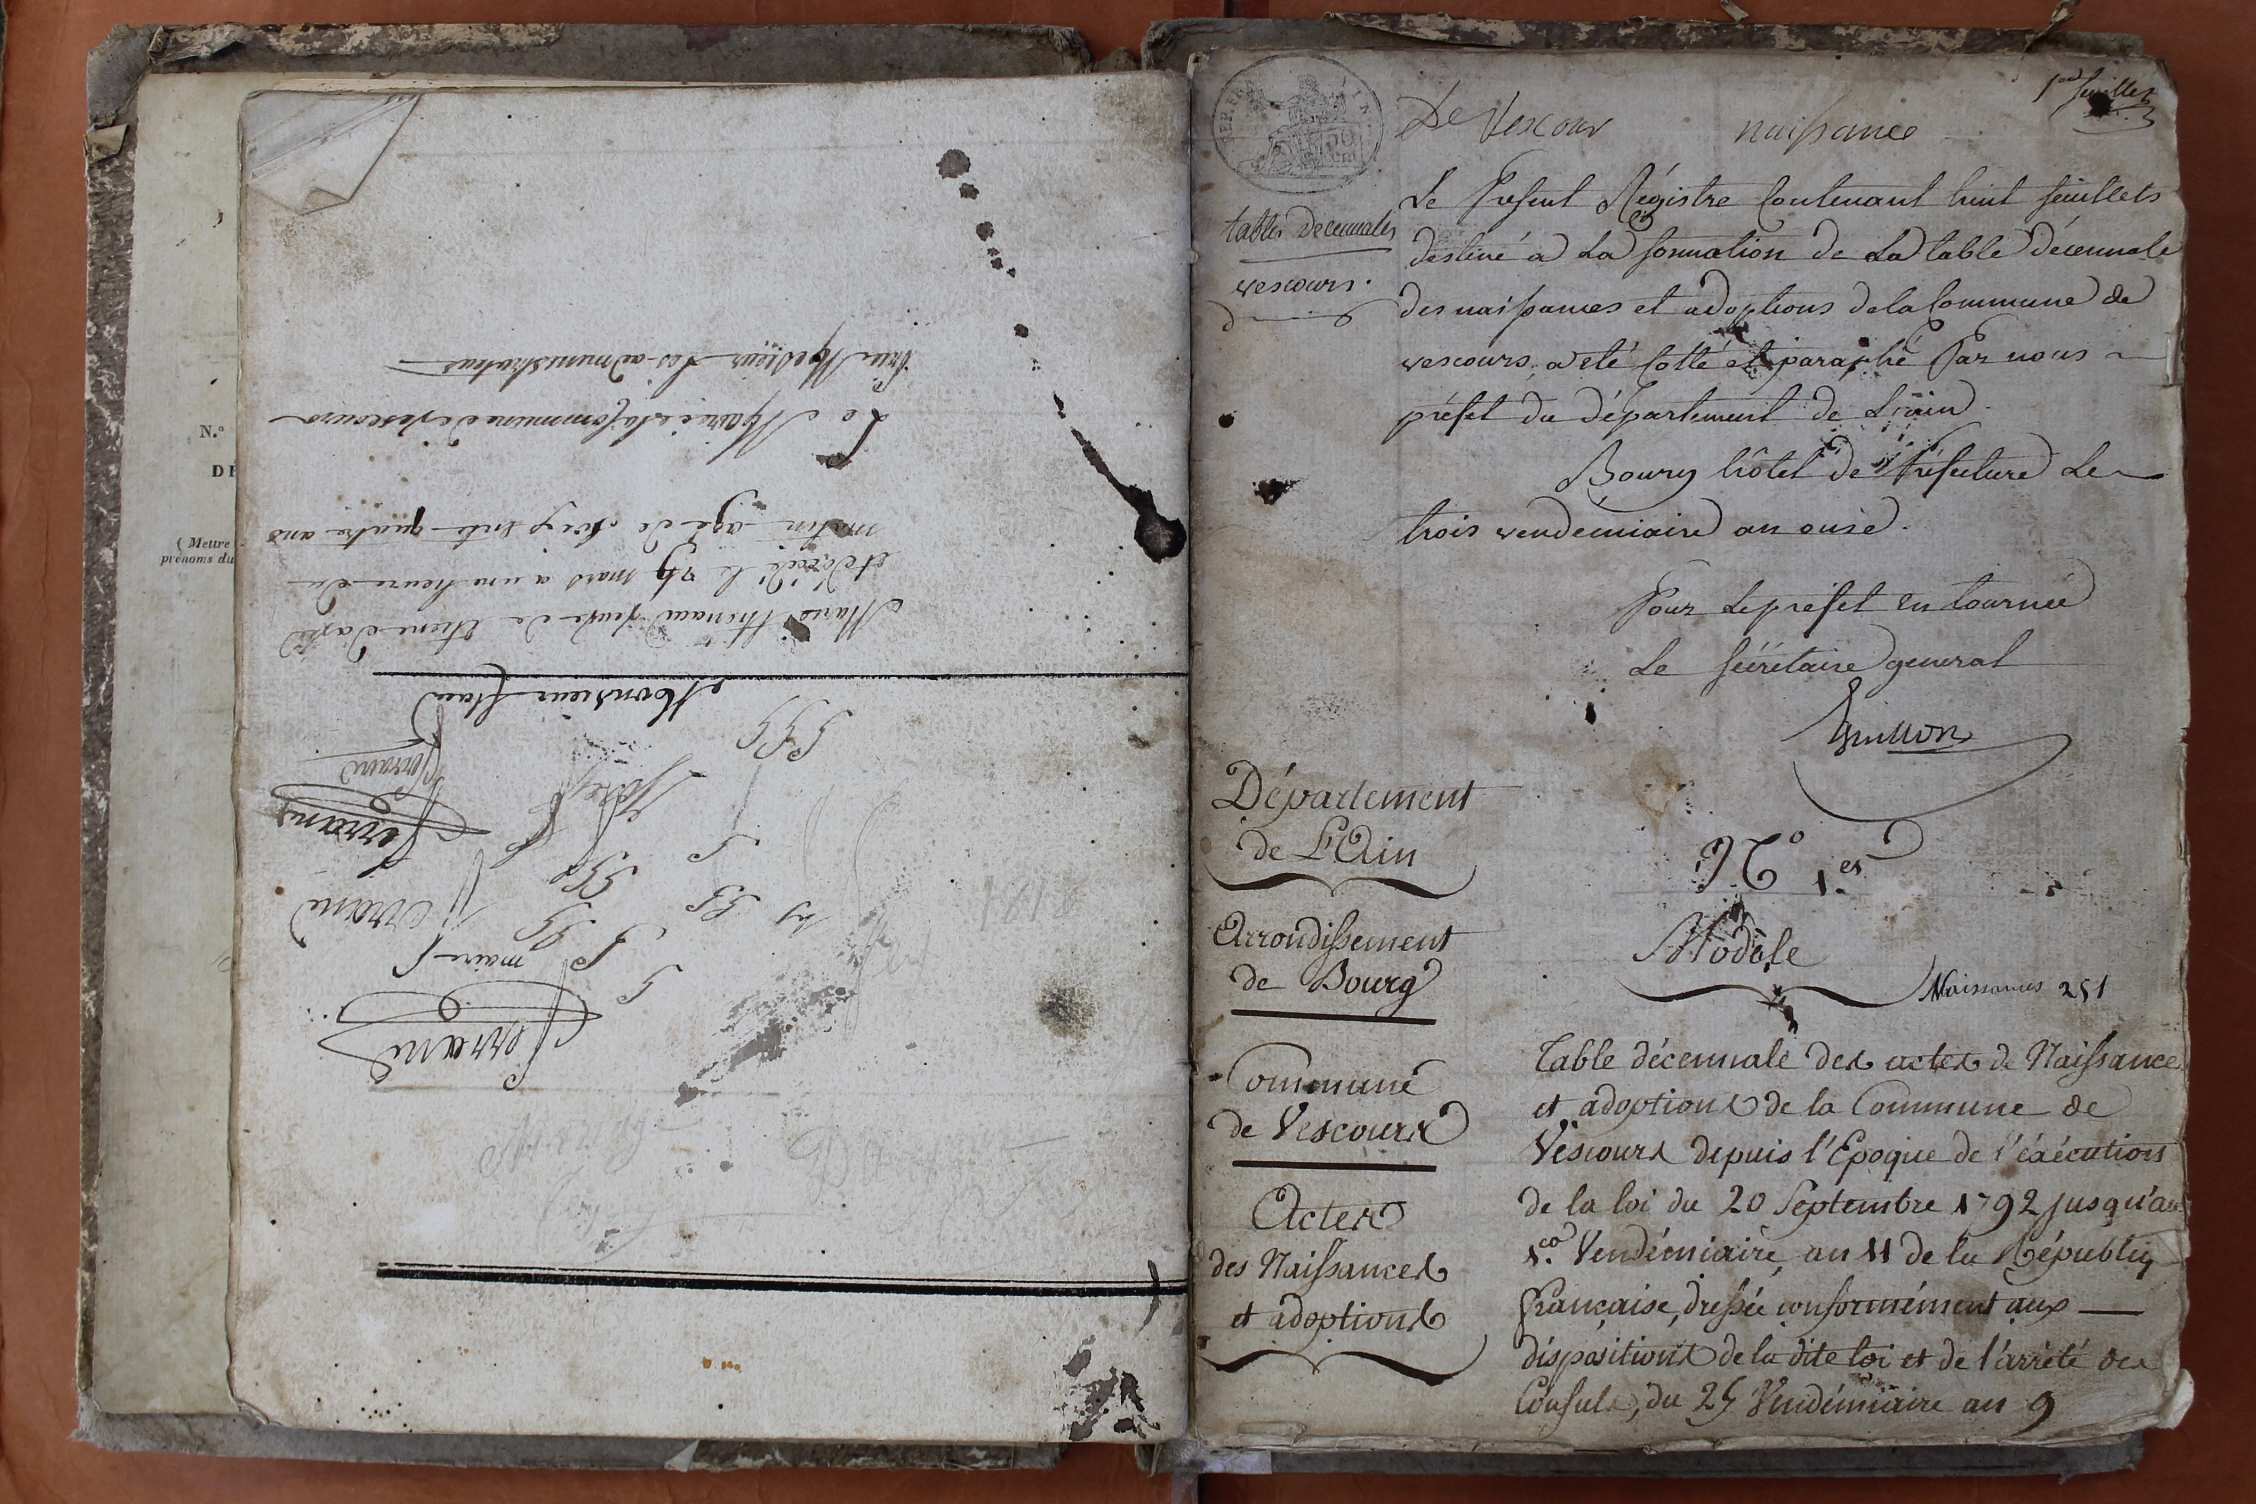 N.°
DÉ
( Mettre
prénoms du
vrai Messieur les administrateur
Le Maire de la Commune de vescours
matin agé de soixante quatre ans
et décédé le 29 mars a une heure du
veuve de
Monsieur
599
Ferrand
Ferrand
maire
Ferrand
1er feuillet
De Vescour naissance
tables decennales
vescours.
Le Present Régistre Contenant huit feuillets
destiné a La formation de La table décennale
des naissances et adoptions de la Commune de
vescours, a eté Cotté et paraphé Par nous
préfet du Département de L'ain.
Bourg hôtel de Préfecture Le
trois vendemiaire an onse.
Pour Le préfet en tournée
Le Sécrétaire general
Département
de L'Ain
Arrondissement
de Bourg
Commune
de Vescours
Actes
des Naissances
et adoptions
N.° 1.er
Modele
Naissances 251
Table décennale des actes de Naissance
et adoptions de la Commune de
Vescours depuis l'Epoque de l'éxécution
de la loi du 20 Septembre 1792 jusqu'au
1.er Vendémiaire, an 11 de la Républiq
française, dressée conformément aux
dispositions de la dite loi et de l'arrété des
Consuls, du 25 Vendémiaire an 9